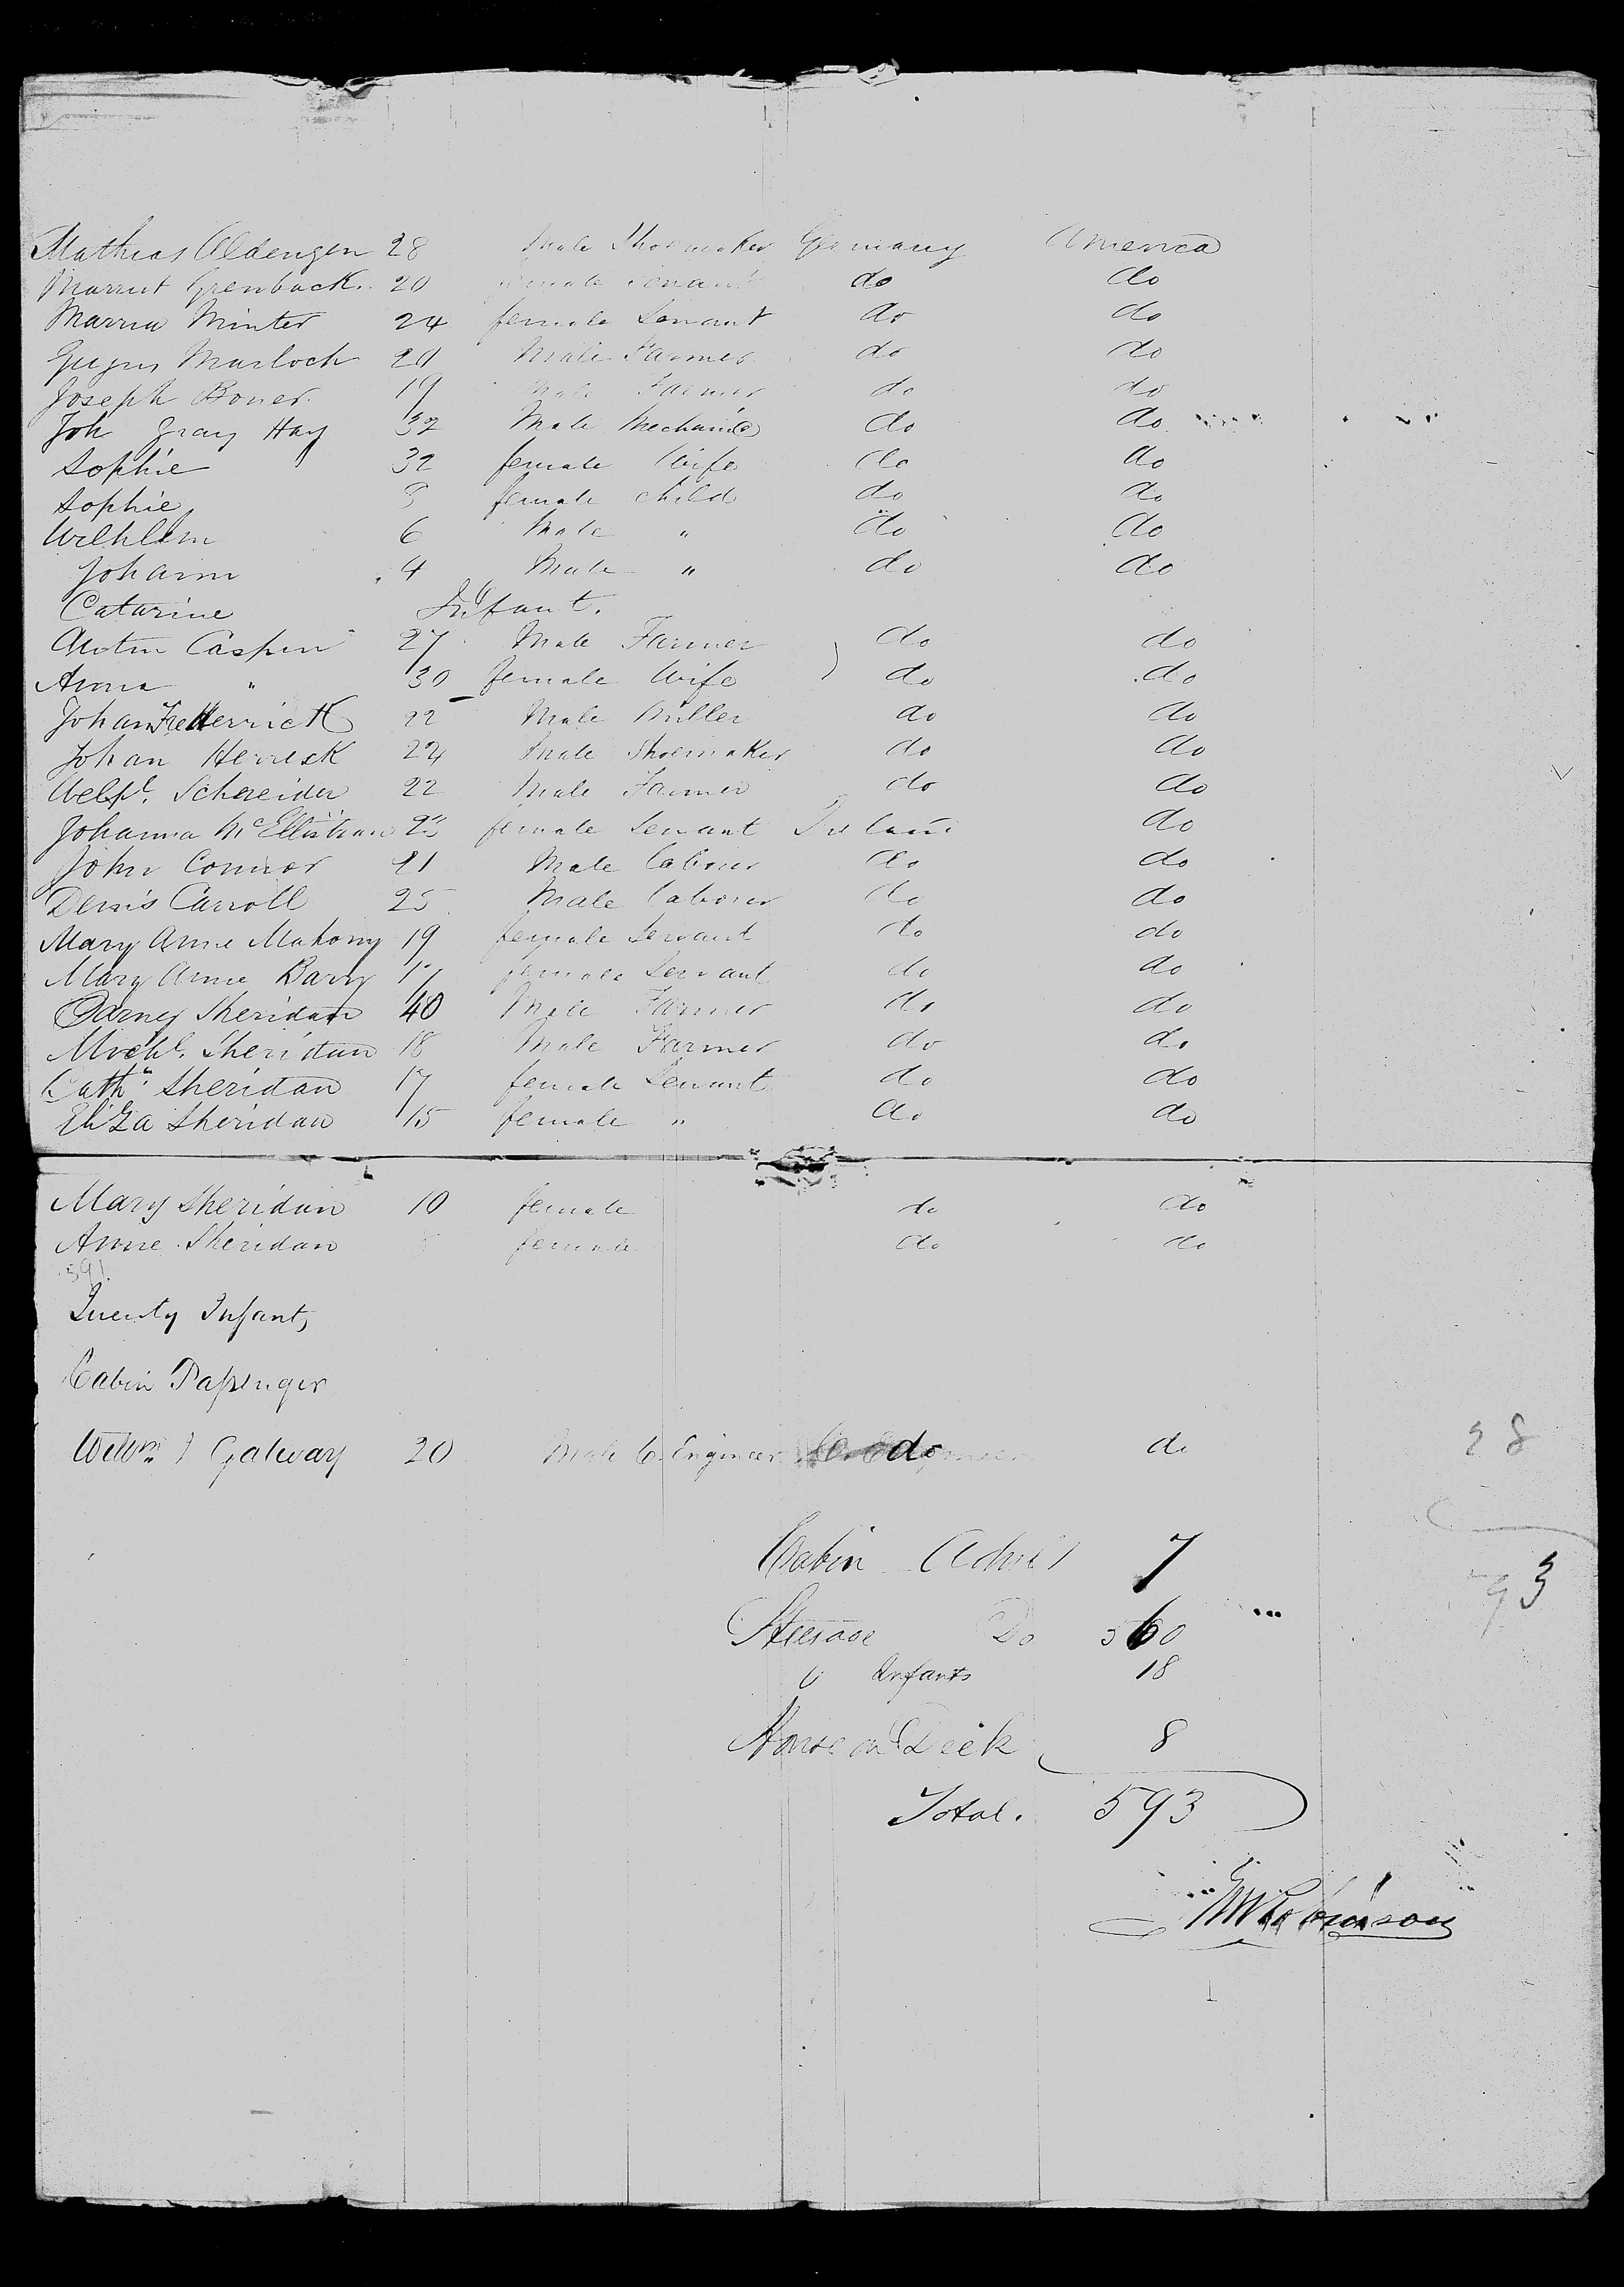 Mathias Aldengen 28 Male Shoemaker Germany America
Marrut Grenback. 20 female Servant do do
Marria Minter 24 female Servant do do
Marloch 20 Male Farmer do do
Joseph Boner. 19 Male Farmer do do
Joh Gray Hay 32 Male Mechanic do do
Sophie 32 female Wife do do
Sophie 8 female child do do
Wilhlem 6 Male " do do
Johann 4 Male " do do
Catarine Infant.
Anton Caspen 27 Male Farmer do do
Anna " 30 female Wife do do
Johan Herrick 22 Male Miller do do
Johan Herreck 24 Male Shoemaker do do
Schneider 22 Male Farmer do do
Johanna female Servant Ireland do
John Connor 21 Male labourer do do
Denis Carroll 25 Male labourer do do
Mary Anne Mahony 19 female Servant do do
Mary Anne Barry 17 female Servant do do
Barney Sheridan 40 Male Farmer do do
Michl. Sheridan 18 Male Farmer do do
Cathn. Sheridan 17 female Servant do do
Eliza Sheridan 15 female " do do
Mary Sheridan 10 female do do
Anne Sheridan female do do
591
Twenty Infants
Cabin Passenger
Willm J Galway 20 Male C. Engineer do do
28
Cabin Adult 7
93
Steerage Do 560
" Infants 18
House on Deck 8
Total. 593
Robinson